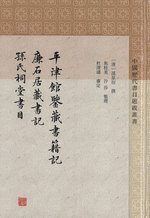 中國歷代書目題跋叢書
〔清〕孫星衍 撰
焦桂美 沙莎
杜澤遜 審定
平津館鑒藏書籍記
廉石居藏書記
孫氏祠堂書目